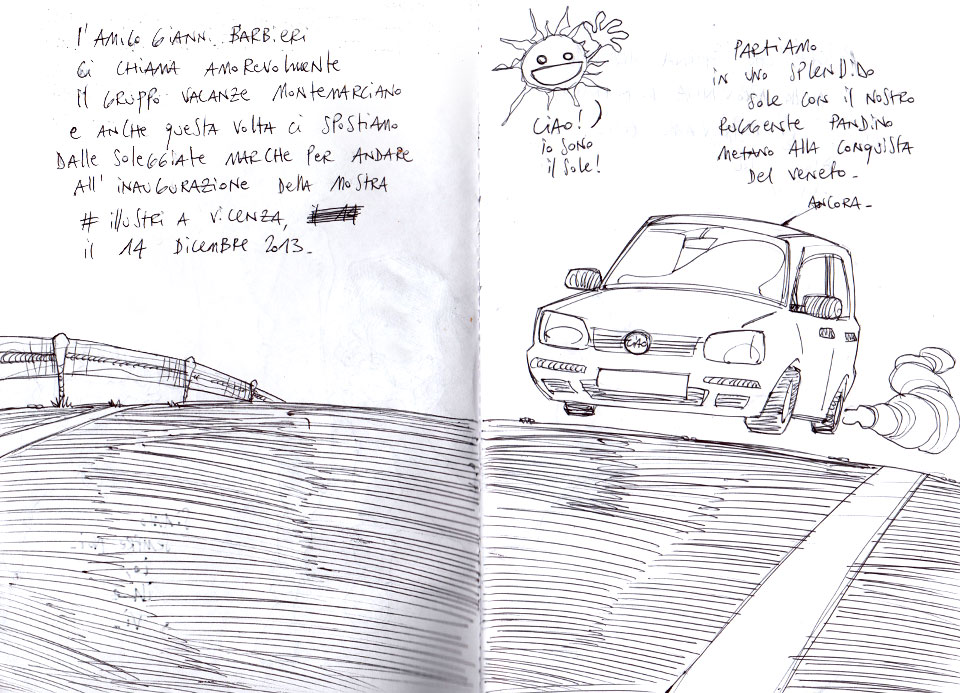 l'AMICO GIANNI BARBIERI
CI CHIAMA AMOREVOLMENTE
il GRUPPO VACANZE MONTEMARCIANO
e ANCHE questa VOLTA CI SPOSTIAMO
DALLE SOLEGGIATE MARCHE PER ANDARE
All'INAUGURAZIONE Della MOSTRA
# illUSTRI A VICENZA,
il 14 DICEMBRE 2013_
CIAO!
io SONO
il Sole!
PARTIAMO
IN UNO SPLENDIDO
SOLE CON il NOSTRO
RUGGENTE PANDINO
METANO ALLA CONQUISTA
Del VENETO_
ANCORA_
CIAO